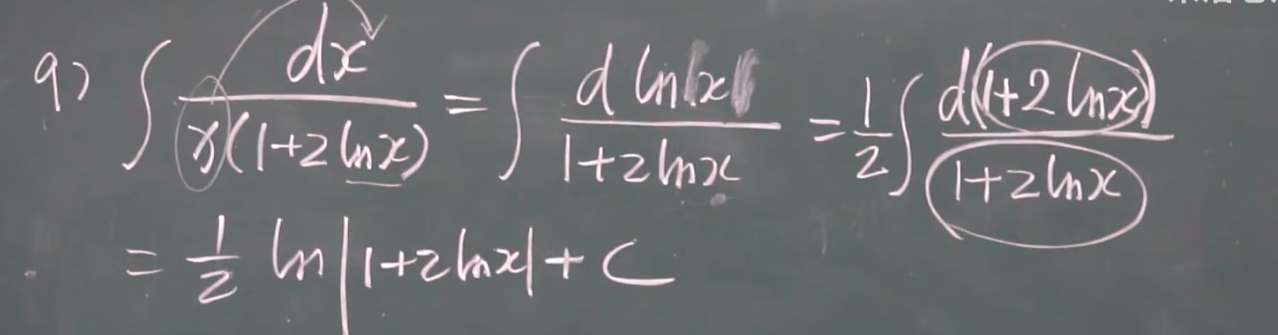 9) ∫ dx / x(1+2lnx) = ∫ d ln|x| / 1+2lnx = 1/2 ∫ d(1+2lnx) / 1+2lnx
= 1/2 ln|1+2lnx| + C